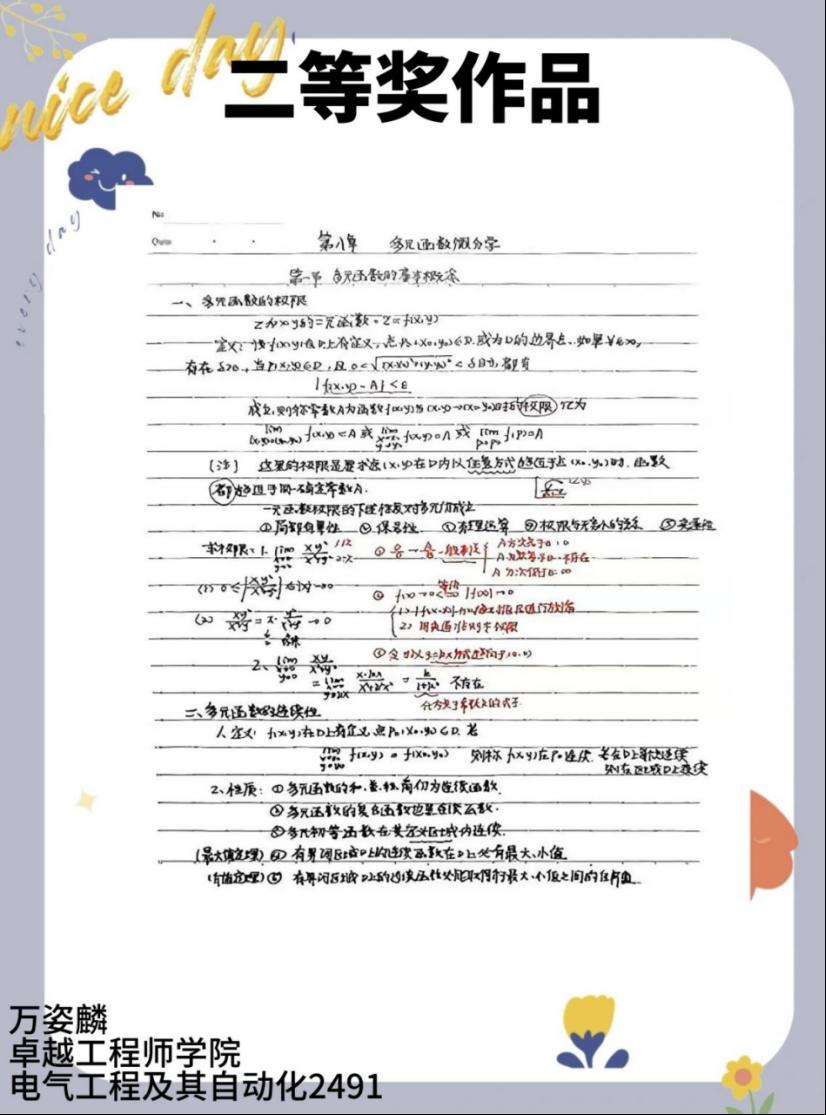 nice day
二等奖作品
every day
No
Date
第八章 多元函数微分学
第一节 多元函数的基本概念
一、多元函数的权限
Z为x,y的二元函数。Z=f(x,y)
定义:设f(x,y)在D上有定义,点P₀(x₀,y₀)∈D.或为D的边界点.如果∀ε>0,
存在δ>0,当P(x,y)∈D,且0<√(x-x₀)²+(y-y₀)²<δ时,都有
|f(x,y)-A|<ε
成立,则称常数A为函数f(x,y)当(x,y)→(x₀,y₀)时的权限 记为
lim f(x,y)=A或 lim f(x,y)=A 或 lim f(P)=A
(注) 这里的权限是要求点(x,y)在D内以任意方式趋近于点(x₀,y₀)时.函数
都趋近于同一确定常数A.
一元函数权限的下述性质对多元仍成立
①局部有界性 ②保号性. ③有理运算 ④权限与无穷小的关系 ⑤夹逼性
求权限:1. lim xy²/x²+y²
(1) 0≤|xy²/x²+y²|≤|x|→0
② f(x)→0⟺|f(x)|→0
(2) xy²/x²+y²=x·y²/x²+y²→0
2、lim xy/x²+y²
= lim x·kx/x²+k²x² = k/1+k² 不存在
二、多元函数的连续性
1.定义:f(x,y)在D上有定义,点P₀(x₀,y₀)∈D.若
lim f(x,y)=f(x₀,y₀) 则称f(x,y)在P₀连续.若在D上每点连续
则在区域D上连续
2、性质:①多元函数的和、差、积、商仍为连续函数.
②多元函数的复合函数也是连续函数.
③多元初等函数在其定义区域内连续.
(最大值定理)④有界闭区域D上的连续函数在D上必有最大、小值
(介值定理)⑤有界闭区域D上的连续函数必能取得最大、小值之间的任何值
万姿麟
卓越工程师学院
电气工程及其自动化2491